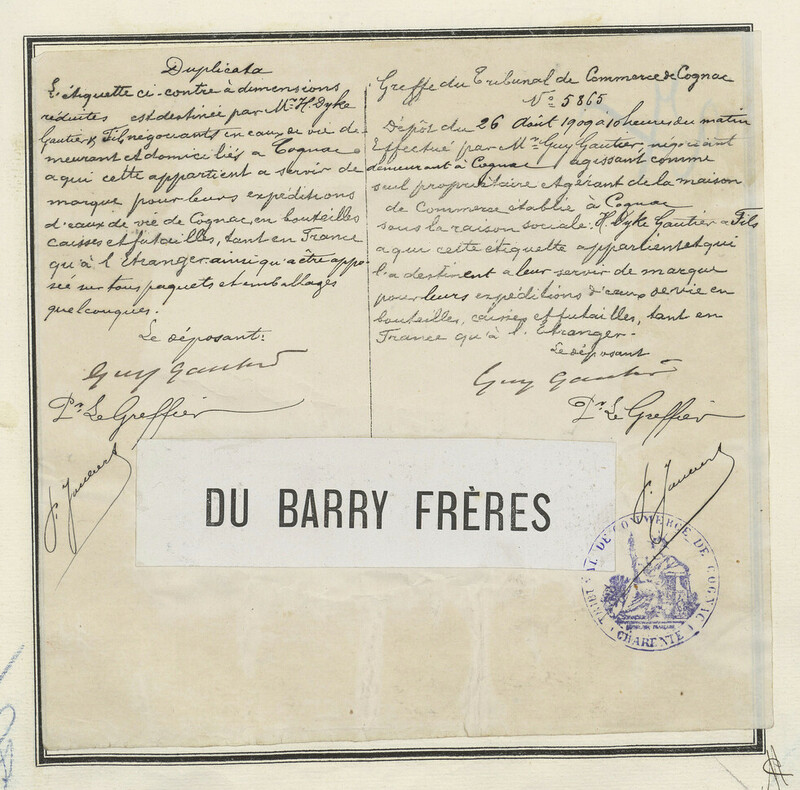 Duplicata
L'étiquette ci-contre à dimensions
réduites est destinée par Mr. H. Dyke
Gautier & Fils négociants en eaux de vie de-
meurant et domiciliés à Cognac
a qui cette appartient a servir de
marque pour leurs expéditions
d'eaux de vie de Cognac, en bouteilles
caisses et futailles, tant en France
qu'à l'Etranger ainsi qu'a être appo-
sée sur tous paquets et emballages
quelconques.
Le déposant:
Guy Gautier
Pr. Le Greffier
Greffe du Tribunal de Commerce de Cognac
No 5865
Dépôt du 26 Août 1909 a 10 heures du matin
Effectué par Mr. Guy Gautier, négociant
demeurant à Cognac agissant comme
seul propriétaire et gérant de la maison
de Commerce établie à Cognac
sous la raison sociale: H. Dyke Gautier & Fils
a qui cette étiquette appartient et qui
l'a destinent a leur servir de marque
pour leurs expéditions d'eaux de vie en
bouteilles, caisses et futailles, tant en
France qu'à l'Etranger.
Le déposant
Guy Gautier
Pr. Le Greffier
DU BARRY FRÈRES
TRIBUNAL DE COMMERCE DE COGNAC
CHARENTE